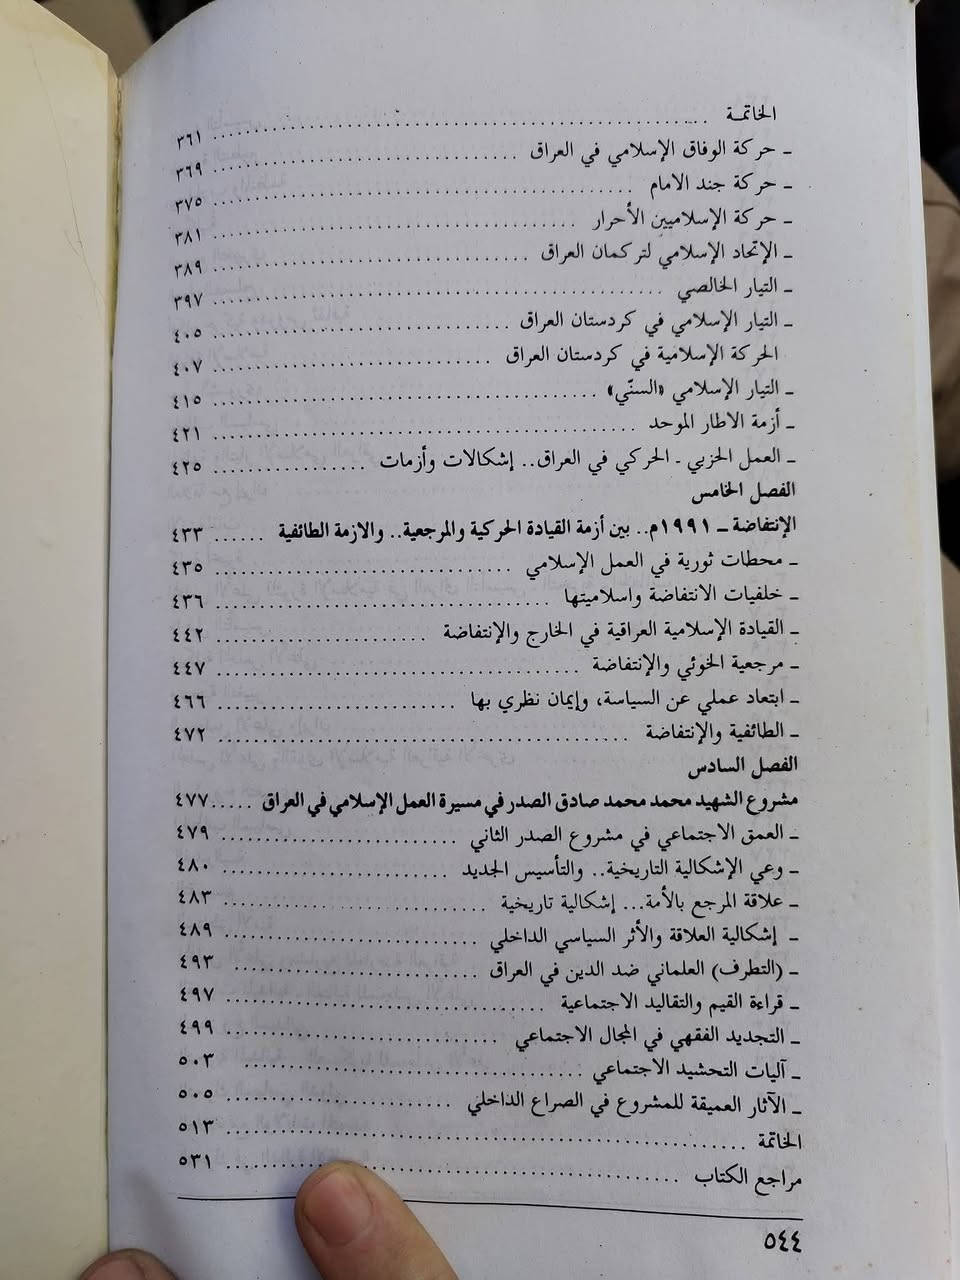 الخاتمة ........ ٣٦١
ـ حركة الوفاق الإسلامي في العراق ........ ٣٦٩
ـ حركة جند الامام ........ ٣٧٥
ـ حركة الإسلاميين الأحرار ........ ٣٨١
ـ الإتحاد الإسلامي لتركمان العراق ........ ٣٨٩
ـ التيار الخالصي ........ ٣٩٧
ـ التيار الإسلامي في كردستان العراق ........ ٤٠٥
الحركة الإسلامية في كردستان العراق ........ ٤٠٧
ـ التيار الإسلامي «السنّي» ........ ٤١٥
ـ أزمة الاطار الموحد ........ ٤٢١
ـ العمل الحزبي ـ الحركي في العراق.. إشكالات وأزمات ........ ٤٢٥
الفصل الخامس
الإنتفاضة ـ ١٩٩١م.. بين أزمة القيادة الحركية والمرجعية.. والازمة الطائفية ...... ٤٣٣
ـ محطات ثورية في العمل الإسلامي ........ ٤٣٥
ـ خلفيات الانتفاضة واسلاميتها ........ ٤٣٦
ـ القيادة الإسلامية العراقية في الخارج والإنتفاضة ........ ٤٤٢
ـ مرجعية الخوئي والإنتفاضة ........ ٤٤٧
ـ ابتعاد عملي عن السياسة، وإيمان نظري بها ........ ٤٦٦
ـ الطائفية والإنتفاضة ........ ٤٧٢
الفصل السادس
مشروع الشهيد محمد محمد صادق الصدر في مسيرة العمل الإسلامي في العراق ..... ٤٧٧
ـ العمق الاجتماعي في مشروع الصدر الثاني ........ ٤٧٩
ـ وعي الإشكالية التاريخية.. والتأسيس الجديد ........ ٤٨٠
ـ علاقة المرجع بالأمة... إشكالية تاريخية ........ ٤٨٣
ـ إشكالية العلاقة والأثر السياسي الداخلي ........ ٤٨٩
ـ (التطرف) العلماني ضد الدين في العراق ........ ٤٩٣
ـ قراءة القيم والتقاليد الاجتماعية ........ ٤٩٧
ـ التجديد الفقهي في المجال الاجتماعي ........ ٤٩٩
ـ آليات التحشيد الاجتماعي ........ ٥٠٣
ـ الآثار العميقة للمشروع في الصراع الداخلي ........ ٥٠٥
الخاتمة ........ ٥١٣
مراجع الكتاب ........ ٥٣١
٥٤٤